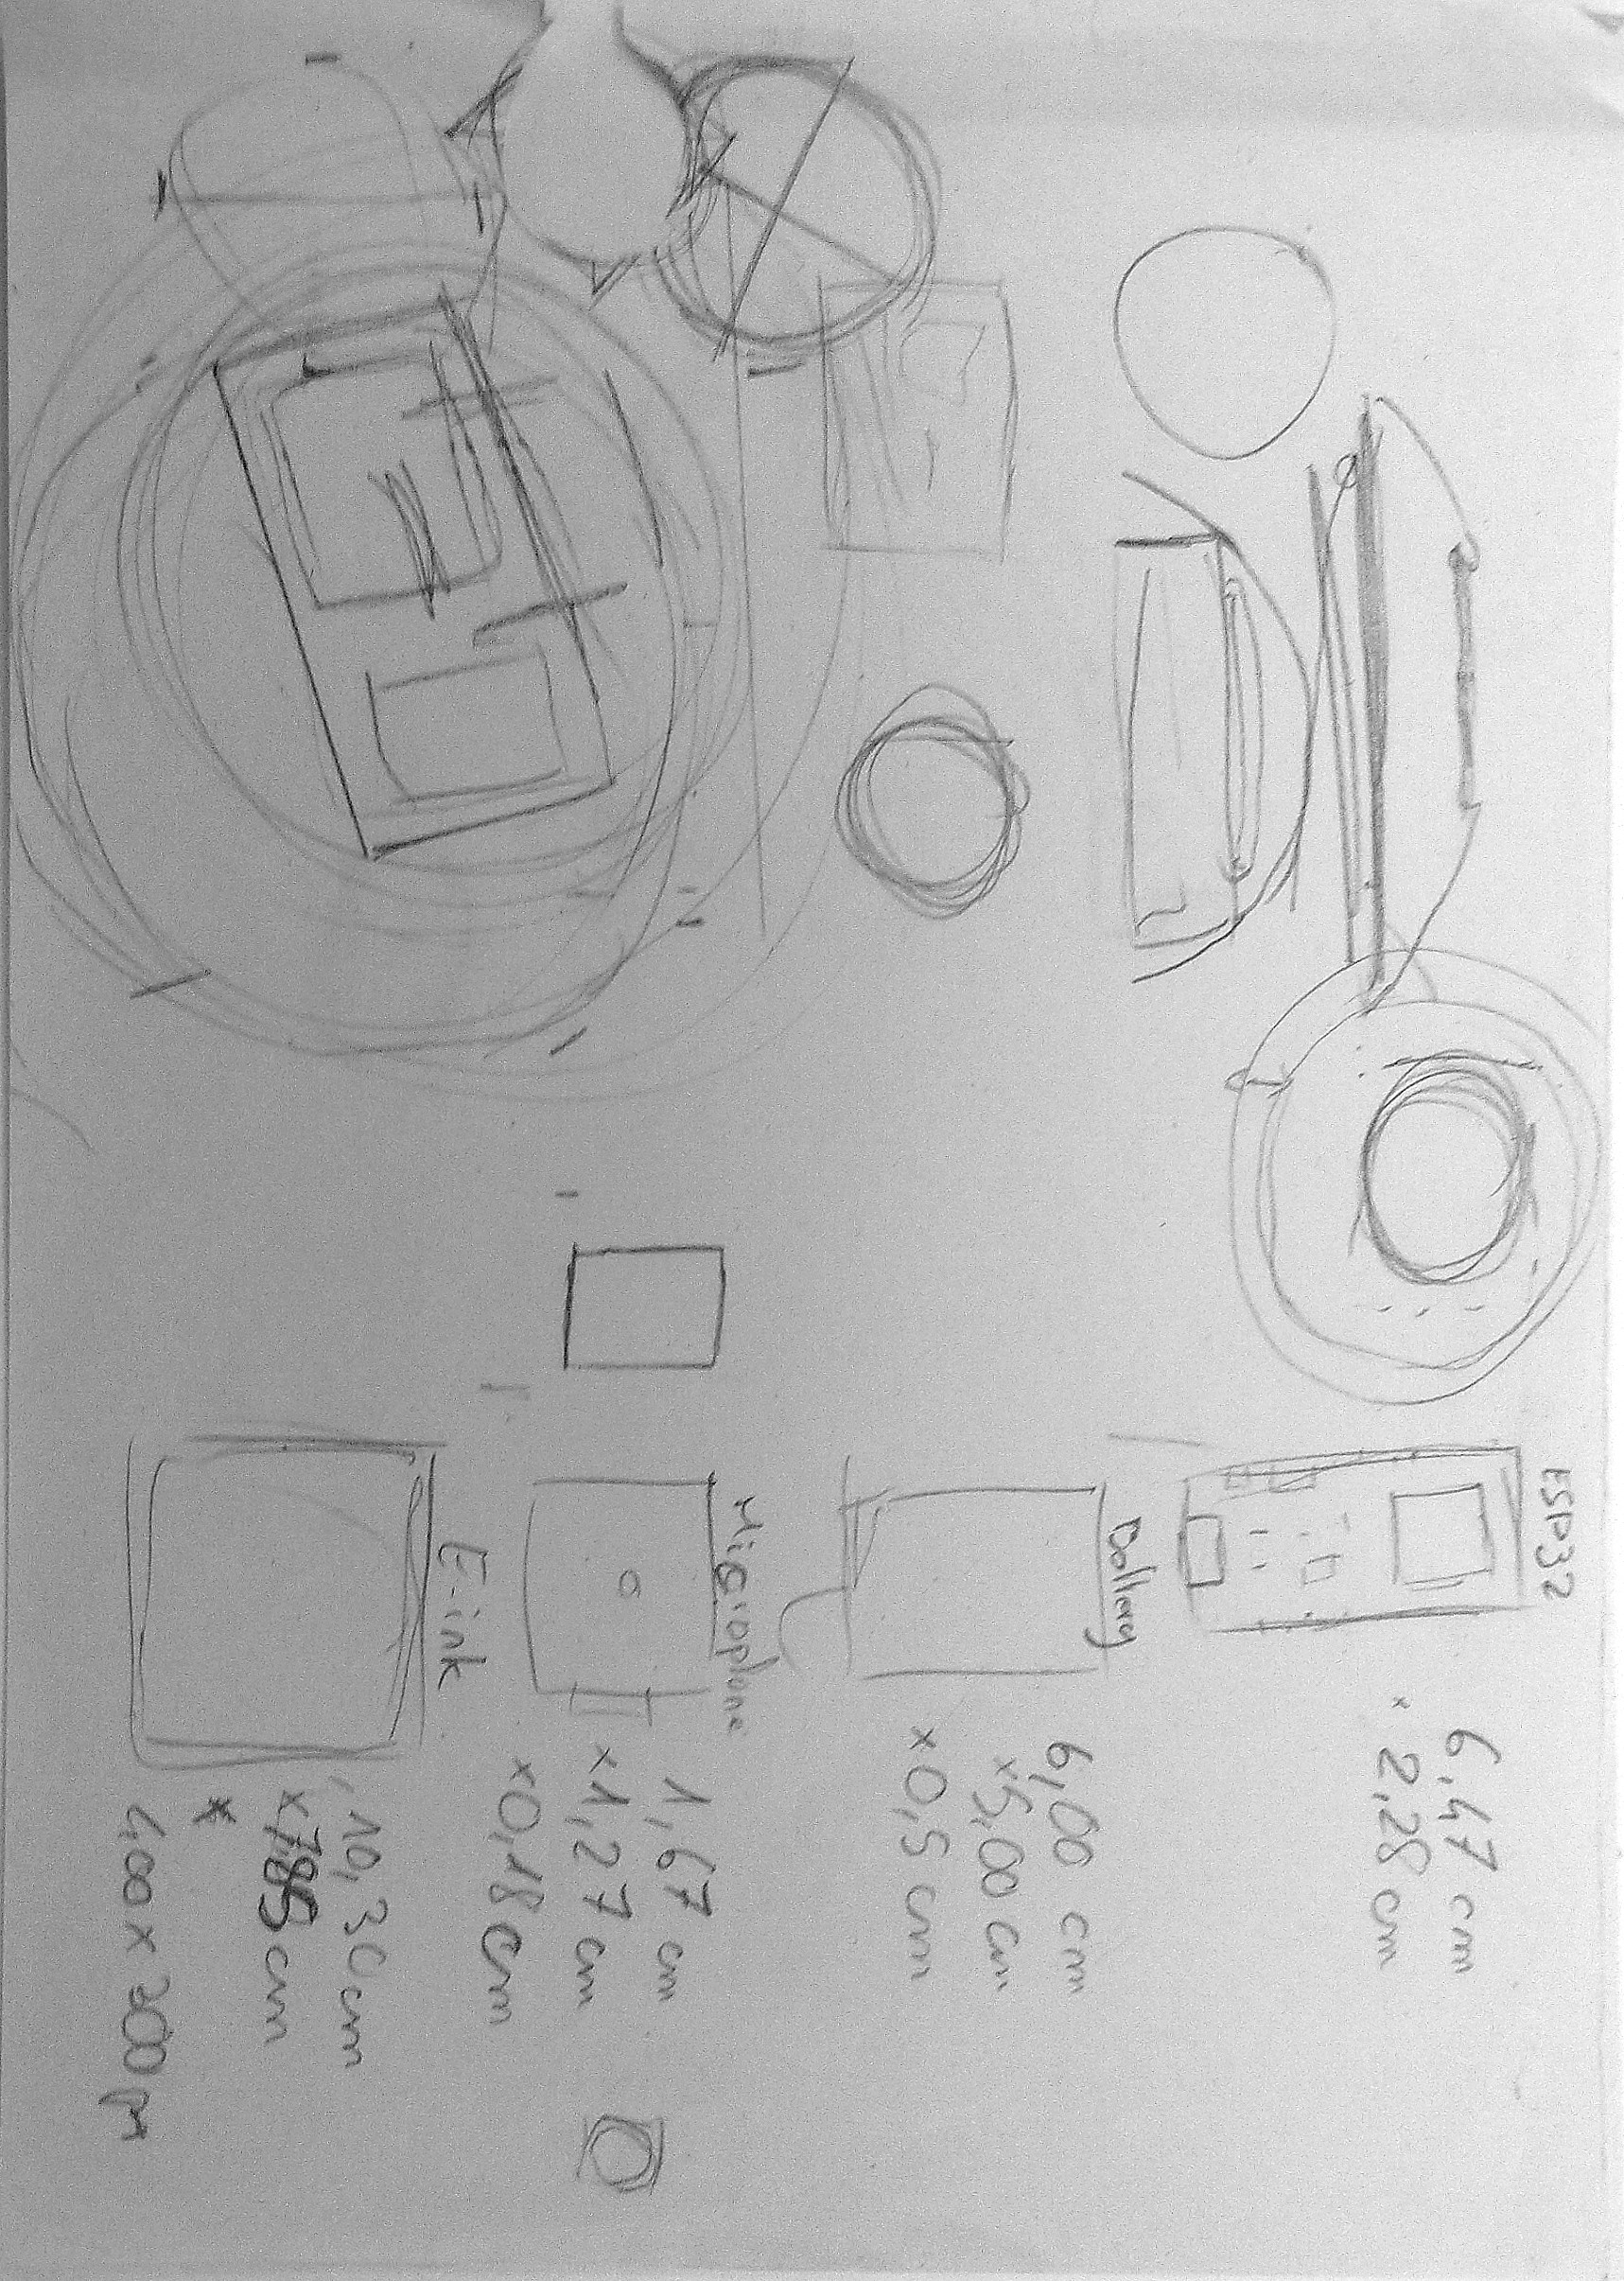 ESP32
6,47 cm
× 2,28 cm
Battery
6,00 cm
×5,00 cm
×0,5 cm
Microphone
1,67 cm
×1,27 cm
×0,18 cm
E-ink
10,30 cm
×7,85 cm
×
400 × 300 px